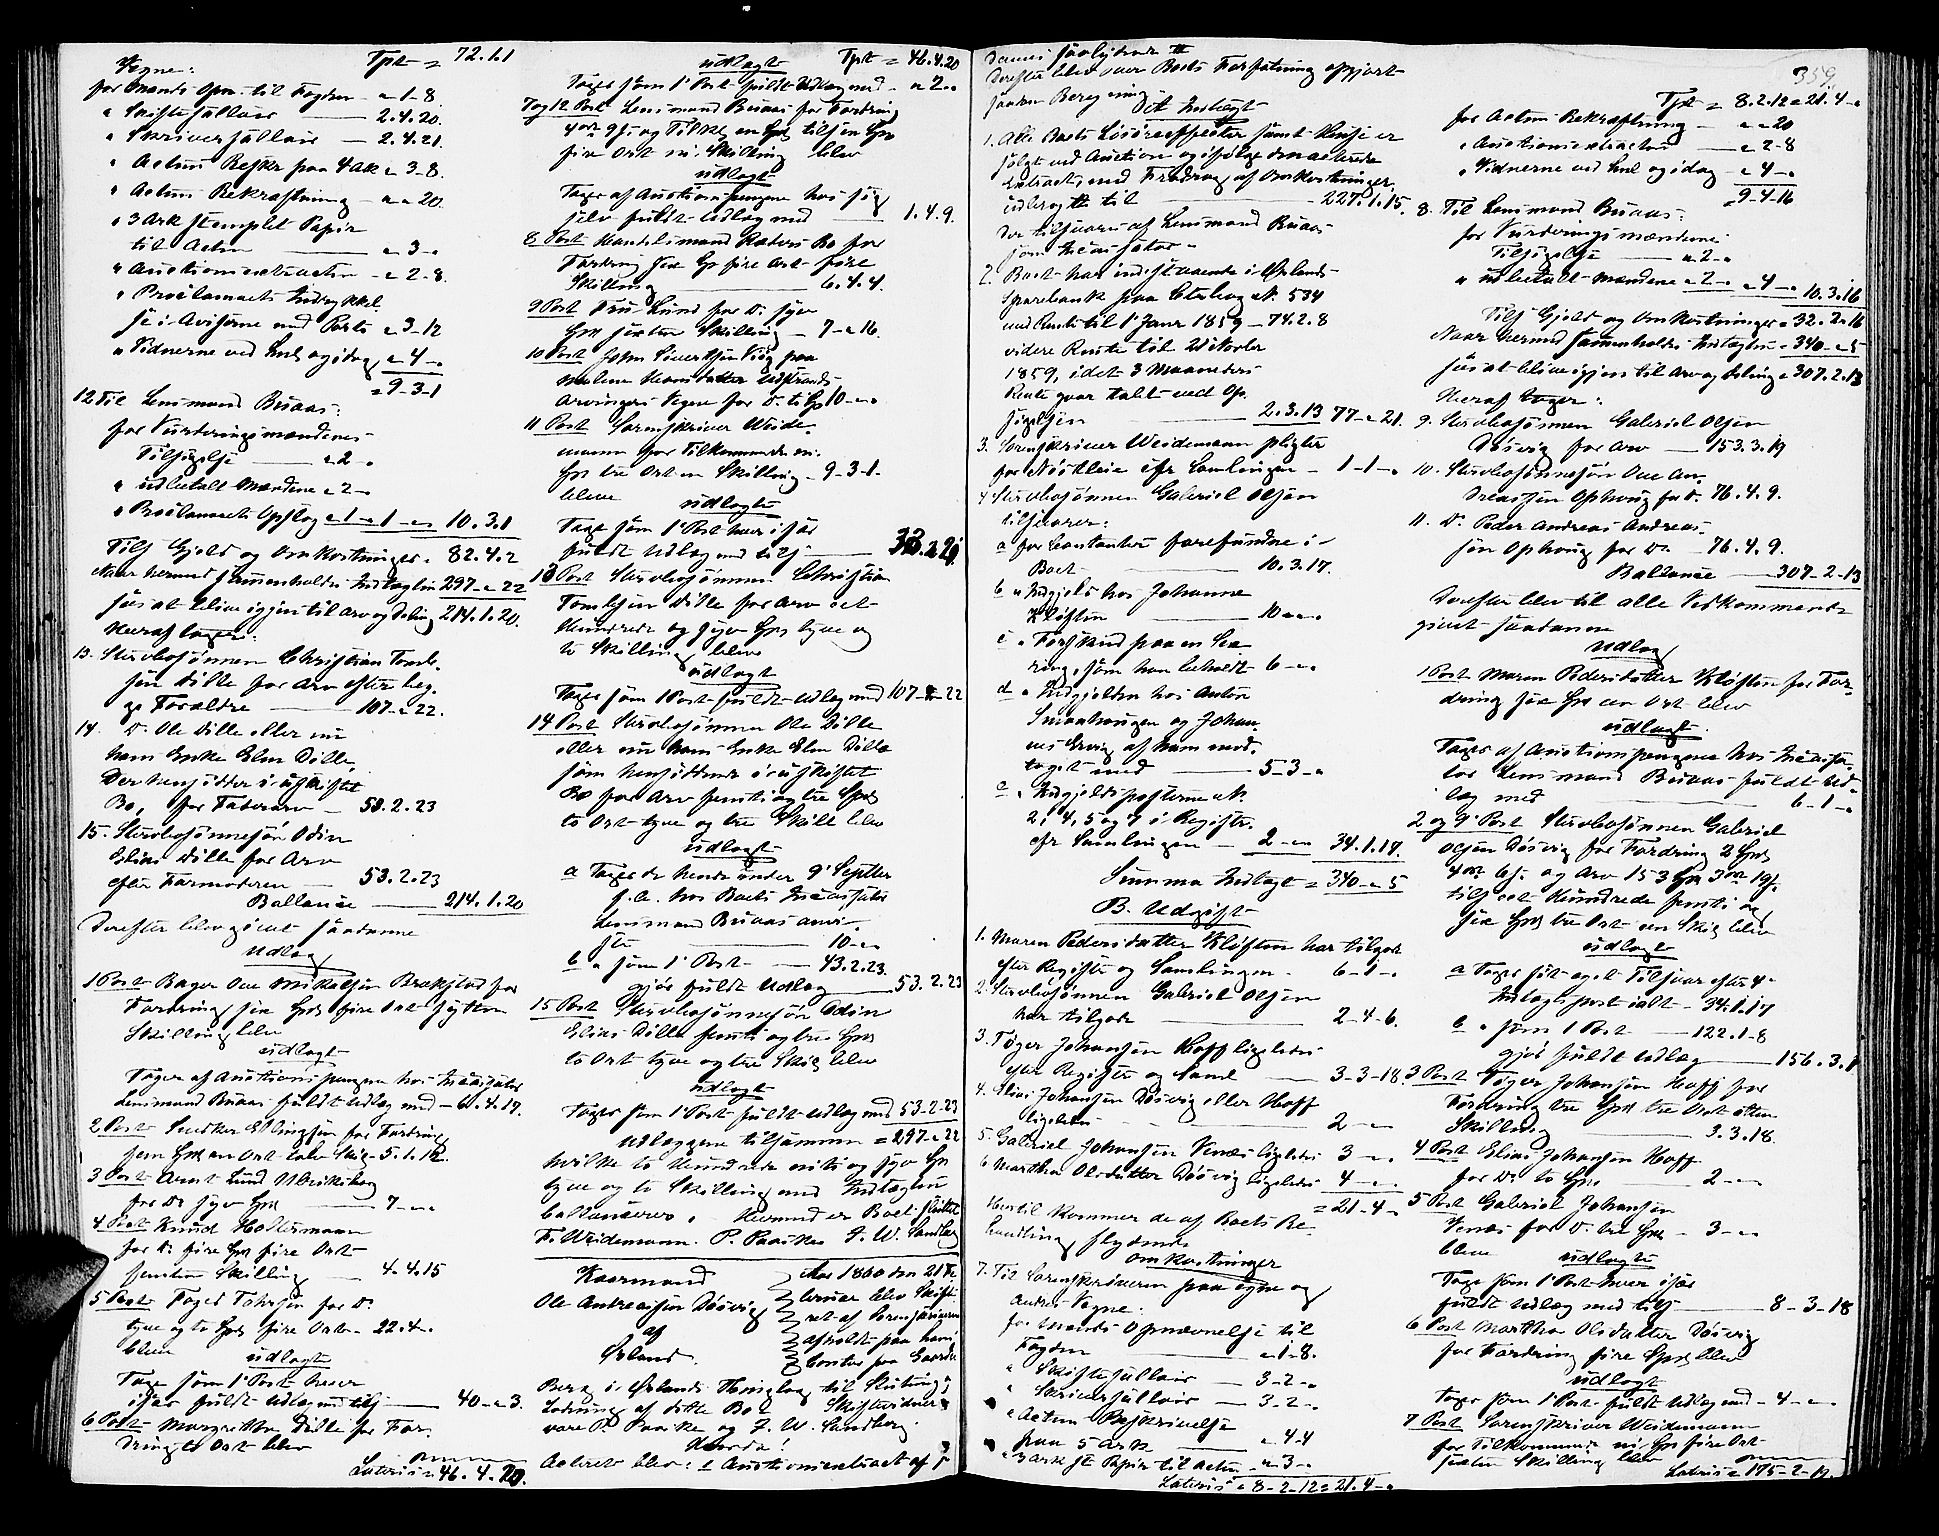 Vegne: Tpt = 72.1.1
for Mands Opn. til Fogden - " 1-8.
" Skiftesallair - 2.4.20.
" Skriversallair - 2.4.21.
" Actens Beskr paa 4 Ark " 3-8.
" Actens Bekræftning - " " 20.
" 3 Ark stemplet Papir
til Acten - " 3 -
" Auctionsextracten - " 2-8.
" Proclamaets Indrykkel
se i Aviserne med Porto " 3-12
" Vidnerne ved Sml og idag " 4 -
" 9-3-1
12 Til Lensmand Buaas:
for Vurderingsmændenes
Tilsigelse - " 2 - "
" udbetalt Mændene " 2 -
" Proclamaets Opslag " 1 - " 1 - " 10.3.1
Tils Gjeld og Omkostninger " 82.4.2
Naar hermed sammenholdes Indtægten 297 - " 22
sees at blive igjen til Arv og Deling 214.1.20.
Heraf tager:
13. Stervbosønnen Christian Tomle-
sen Dille for Arv efter beg-
ge Forældre - 107 - " 22.
14. Do Ole Dille eller nu
hans Enke Elen Dille
Der hensidder i uskiftet
Bo, for Faderarv - 53.2.23
15. Stervbosønnesøn Odin
Elias Dille for Arv
efter Farmoderen - 53.2.23
Ballance - 214.1.20
Derefter blev gjort saadanne
Udlæg
1 Post Bager Ove Mikelsen Brækstad for
Fordring sex Spd fire Ort sytten
Skilling blev
udlagt
Tages af Auctionspengene hos Incassator
Lensmand Buaas fuldt Udlæg med - 6.4.17.
2 Post Snedker Ellingsen for Fordring
fem Spd en Ort tolv Skilg - 5.1.12.
3 Post Arnt Lund Ulriksborg
for Do syv Spd - 7 - " - "
4 Post Knud Holtermann
for Do fire Spd fire Ort
femten Skilling - 4.4.15
5 Post Foged Tohrsen for Do
tyve og to Spd fire Ort - 22.4 - "
bleve udlagte
Tage som 1' Post hver
især fuldt Udlæg med tils - 40 - " 3.
6 Post Margrethe Dille for For-
dring to Ort blev
Lateris = 46.4.20.
udlagt Tpt = 46.4.20
Tages som 1' Post fuldt Udlæg med - " 2 - "
7 og 12 Post Lensmand Buaas for Fordring
4 Ort 9 s og Tilk en Spd tils en Spd
fire Ort ni Skilling blev
udlagt
Tages af Auctionspengene hos sig
selv fuldt Udlæg med - 1.4.9.
8 Post Handelsmand Rœtvers Bo for
Fordring sex Sp fire Ort fire
Skilling - 6.4.4.
9 Post Fru Lund for Do syv
Spd sexten Skilling - 7 - " 16.
10 Post John Sivertsen Viig paa
Arvingers Vegne for Do ti Sp 10 - " - "
11 Post Sorenskriver Weide-
mann for Tilkommende ni
Spd tre Ort en Skilling - 9-3-1.
bleve udlagte
Tage som 1' Post hver især
fuldt Udlæg med tils - 33.2.21
13 Post Stervbosønnen Christian
Tomlesen Dille for Arv eet
Hundrede og syv Spd tyve og
to Skilling blev
udlagt
Tages som 1 Post fuldt Udlæg med 107 - " 22
14 Post Stervbosønnen Ole Dille
eller nu hans Enke Elen Dille
som hensiddende i uskiftet
Bo for Arv femti og tre Spd
to Ort tyve og tre Skill blev
udlagt
a Tages de hende under 9' Septbr
f. A. hos Boets Incassator
Lensmand Buaas anvi-
ste - 10 - "
b " som 1' Post - 43.2.23.
gjør fuldt Udlæg - 53.2.23
15 Post Stervbosønnesøn Odin
Elias Dille femti og tre Spd
to Ort tyve og tre Skilg blev
udlagt
Tages som 1' Post fuldt Udlæg med 53.2.23
Udlæggene tilsammen = 297 - " 22
hvilke to Hundrede niti og syv Sp
tyve og to Skilling med Indtægten
ballancerer. Hermed er Boet sluttet
F. Weidemann. P. Paaske J. W. Sandberg
Kaarmand
Ole Andreassen Døsvig
af
Ørland.
Aar 1860 den 21 Fe
bruar blev Skift-
ret af Sorenskriveren
afholdt paa hans
Contor paa Gaarden
Berg i Ørlands Thinglag til Slutnings
Ladning af dette Bo. Skiftevidner
vare P. Paaske og J. W. Sandberg.
Hvorda!
Acteret blev: 1 Auctionsextract af 5
Dennes saalydende
Derefter blev over Boets Forfatning opgjort
saadan Beregning
A Indtægt
1. Alle Boets Løsøreeffecter samt Huse er
solgt ved Auction og ifølge den acterede
Extract, med Fradrag af Omkostninger,
udbragt til - 227.1.15.
Der tilsvares af Lensmand Buaas
som Incassator.
2. Boet har indestaaende i Ørlands
Sparebank paa Contrabog No 534
med Rente til 1' Janr 1859 - 74.2.8
videre Rente til 21 Novbr
1859, idet 3 Maaneders
Rente gaar tabt ved Op-
sigelsen - 2.3.13 77 - " 21.
3. Sorenskriver Weidemann pligter
for Næstleie efr Samlingen - 1-1 - "
4 Stervbosønnen Gabriel Olsen
tilsvarer:
a for Contanter forefundne i
Boet - 10.3.17.
b " Indgjeld hos Johanne
Kløften - 10 - " - "
c " Forstand paa en Sæ-
ring, som han beholdt 6 - " - "
d " Indgjelden hos Anton
Smaahaugen og Johan-
nes Ervig af ham mod-
taget med - 5-3 - "
e " Indgjeldsposterne No
2, 4, 5 og 7 i Registr.
efr Samlingen - 2 - " - " 34.1.17.
Summa Indtægt = 340 - " 5
B. Udgift
1. Maren Pedersdatter Kløften har tilgode
efter Registr og Samlingen - 6-1 - "
2. Stervbosønnen Gabriel Olsen
har tilgode - 2-4-6.
3. Tøger Johansen Hoff ligeledes
efter Registr og Saml - 3-3-18
4. Elias Johansen Døsvig eller Hoff
ligeledes - 2 - "
5. Gabriel Johansen Venæs ligeledes 3 - " - "
6 Martha Olsdatter Døsvig ligeledes 4 - " - "
= 21-4 - "
Hertil kommer de af Boets Be-
handling flydende
Omkostninger
7. Til Sorenskriveren paa egne og
Andres Vegne:
for Mands Opnævnelse til
Fogden - " 1-8.
" Skiftesallair - 3-2 - "
" Skriversallair - 3-2 - "
" Actens Beskrivelse
paa 5 Ark - " 4-4
" 3 Ark st Papir til Acten - " 3 - "
Lateris = 8-2-12 = 21.4 - "
359.
Tpt = 8.2.12 = 21.4 - "
for Actens Bekræftning - " " 20
" Auctionsextracten - " 2-8
" Vidnerne ved Sml og idag - " 4 - "
" 9-4-16
8. Til Lensmand Buaas:
for Vurderingsmændenes
Tilsigelse - " 2 - "
" udbetalt Mændene " 2 - " " 4 - " 10.3.16
Tils Gjeld og Omkostninger = 32.2.16
Naar hermed sammenholdes Indtægten = 340 - " 5
sees at blive igjen til Arv og Deling = 307.2.13
Heraf tager:
9. Stervbosønnen Gabriel Olsen
Døsvig for Arv - 153.3.19
10. Stervbosønnesøn Ove An-
dreassen Ophoug for Do 76.4.9.
11. Do Peder Andreas Andreas-
sen Ophoug for Do - 76.4.9.
Ballance - 307-2-13
Derefter blev til alle Vedkommende
gjort saadanne
Udlæg
1 Post Maren Pedersdatter Kløften for For-
dring sex Spd en Ort blev
udlagt
Tages af Auctionspengene hos Incassa-
tor Lensmand Buaas fuldt Ud-
læg med - 6-1 - "
2 og 9' Post Stervbosønnen Gabriel
Olsen Døsvig for Fordring 2 Spd
4 Ort 6 s. og Arv 153 Spd 3 Ort 19 s.
tils eet Hundrede femti og
sex Spd tre Ort en Skilg blev
udlagt
a Tages sit eget Tilsvar efter 4'
Indtægtspost ialt - 34.1.17
b " som 1 Post - 122.1-8
gjør fuldt Udlæg - 156.3.1
3 Post Tøger Johansen Hoff for
Fordring tre Spd tre Ort atten
Skilling - 3.3.18.
4 Post Elias Johansen Hoff
for Do to Spd - 2 - " - "
5 Post Gabriel Johansen
Venæs for Do tre Spd - 3 - " - "
bleve udlagte
Tage som 1' Post hver især
fuldt Udlæg med tils - 8-3-18
6 Post Martha Olsdatter Døsvig
for Fordring fire Spd blev
udlagt
Tages som 1' Post fuldt Udlæg med - 4 - " - "
7 Post Sorenskriver Weidemann
for Tilkommende ni Sp fire Ort
sexten Skilling blev
Lateris = 175-2-19.